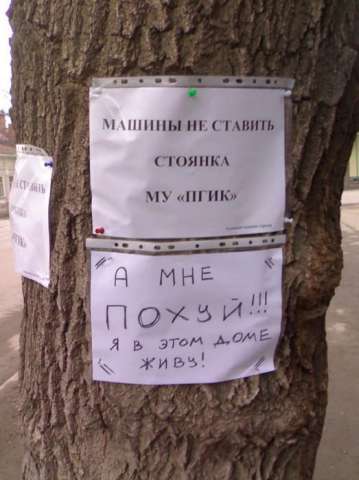 МАШИНЫ НЕ СТАВИТЬ
СТОЯНКА
МУ «ПГИК»
А МНЕ
ПОХУЙ!!!
Я В ЭТОМ ДОМЕ
ЖИВУ!